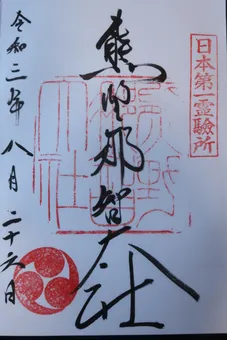 日本第一霊験所
熊野那智大社
令和三年八月二十六日